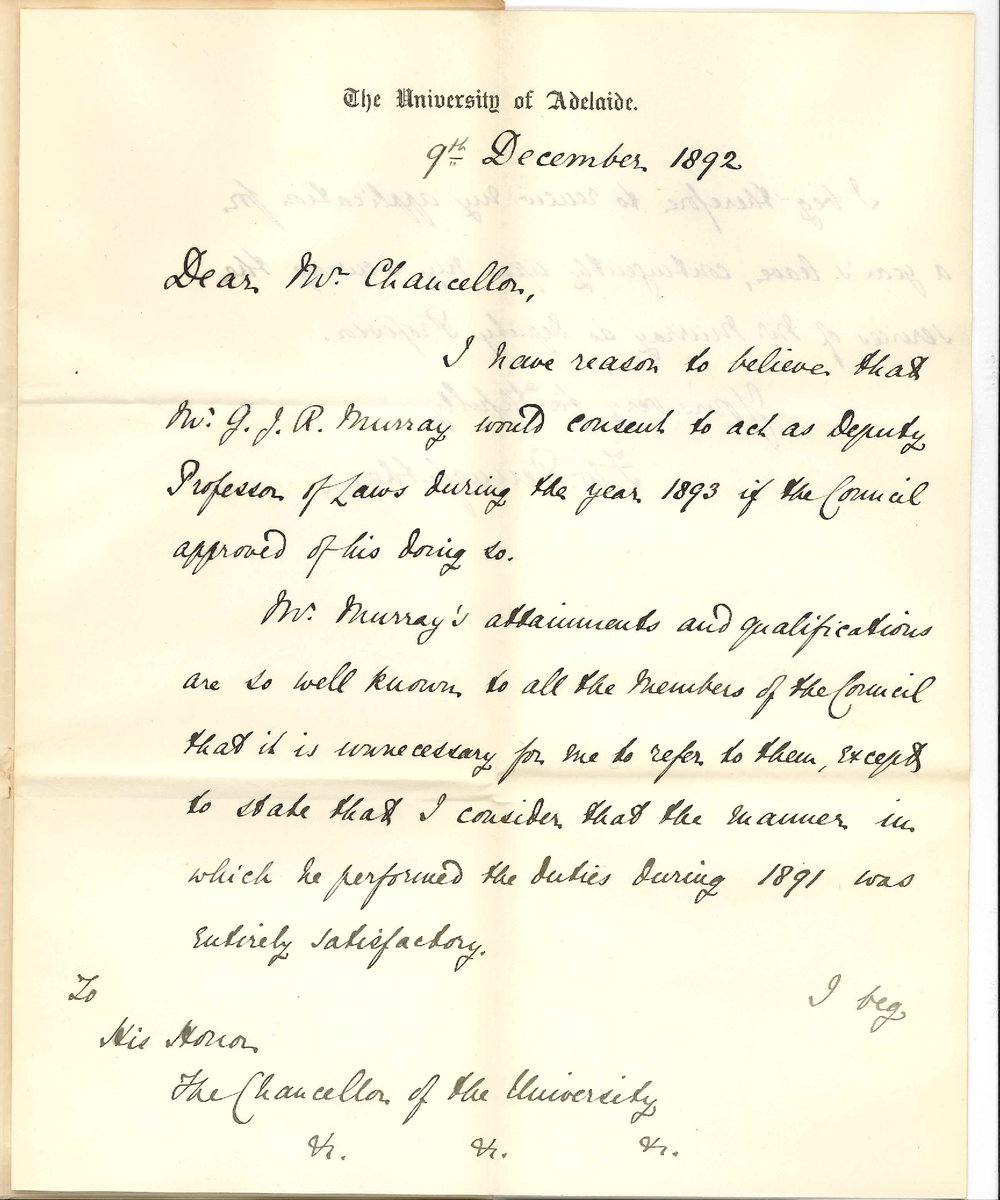 The University of Adelaide.
9th December 1892
Dear Mr. Chancellor,
I have reason to believe that
Mr. G. J. R. Murray would consent to act as Deputy
Professor of Laws during the year 1893 if the Council
approved of his doing so.
Mr. Murray's attainments and qualifications
are so well known to all the Members of the Council
that it is unnecessary for me to refer to them, except
to state that I consider that the manner in
which he performed the duties during 1891 was
entirely satisfactory.
I beg
To
His Honor
The Chancellor of the University
&c. &c. &c.